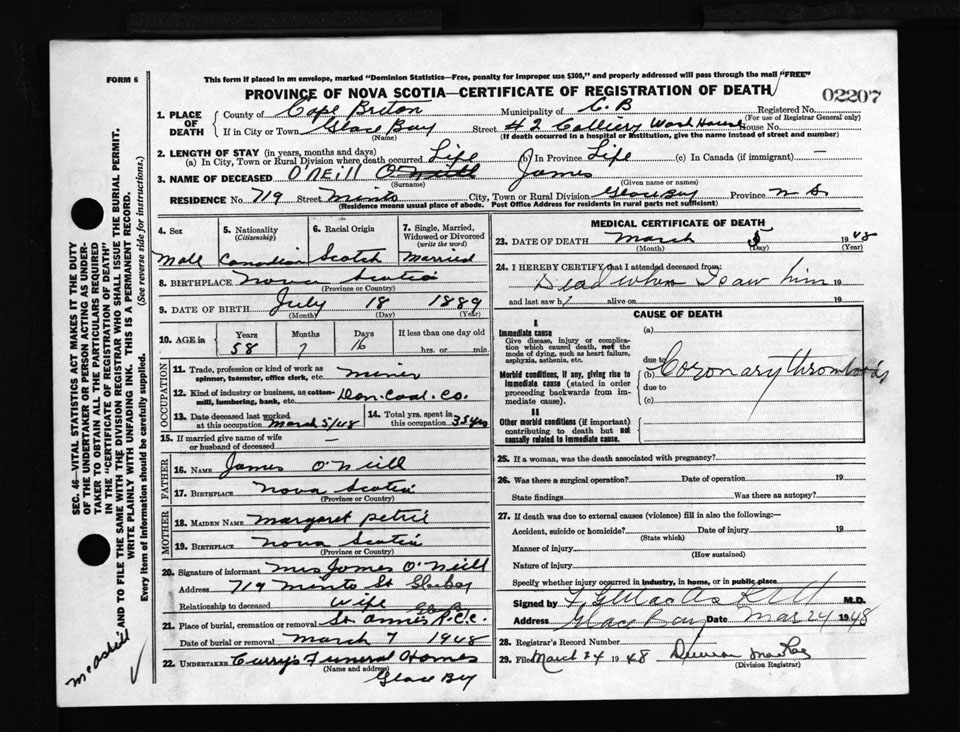 FORM 6
This form if placed in an envelope, marked "Dominion Statistics—Free, penalty for improper use $300," and properly addressed will pass through the mail "FREE"
PROVINCE OF NOVA SCOTIA—CERTIFICATE OF REGISTRATION OF DEATH
02207
1. PLACE OF DEATH
County of Cape Breton Municipality of C.B Registered No.
(For use of Registrar General only)
If in City or Town Glace Bay Street # 2 Colliery Wash House House No.
(Name) (If death occurred in a hospital or institution, give the name instead of street and number)
2. LENGTH OF STAY (in years, months and days)
(a) In City, Town or Rural Division where death occurred Life (b) In Province Life (c) In Canada (if immigrant) —
3. NAME OF DECEASED O'NEILL O'Neill James
(Surname) (Given name or names)
RESIDENCE No. 719 Street Minto City, Town or Rural Division Glace Bay Province N S.
(Residence means usual place of abode. Post Office Address for residents in rural parts not sufficient)
4. Sex
Male
5. Nationality
(Citizenship)
Canadian
6. Racial Origin
Scotch
7. Single, Married, Widowed or Divorced
(write the word)
Married
8. BIRTHPLACE Nova Scotia
(Province or Country)
9. DATE OF BIRTH July 18 1889
(Month) (Day) (Year)
10. AGE in
Years Months Days If less than one day old
58 7 16 hrs. or min.
OCCUPATION
11. Trade, profession or kind of work as spinner, teamster, office clerk, etc. miner
12. Kind of industry or business, as cotton-mill, lumbering, bank, etc. Dom. Coal. Co.
13. Date deceased last worked at this occupation March 5/48
14. Total yrs. spent in this occupation 35 yrs
15. If married give name of wife or husband of deceased —
FATHER
16. NAME James O'Neill
17. BIRTHPLACE Nova Scotia
(Province or Country)
MOTHER
18. MAIDEN NAME Margaret Petrie
19. BIRTHPLACE Nova Scotia
(Province or Country)
20. Signature of informant Mrs James O'Neill
Address 719 Minto St Glace Bay
Relationship to deceased Wife
21. Place of burial, cremation or removal St. Anne's R.C.C.
Date of burial or removal March 7 1948
22. UNDERTAKER Curry's Funeral Homes
(Name and address)
Glace Bay
MEDICAL CERTIFICATE OF DEATH
23. DATE OF DEATH March 5 1948
(Month) (Day) (Year)
24. I HEREBY CERTIFY that I attended deceased from:
Dead when I saw him 19
and last saw h alive on 19
CAUSE OF DEATH
I
Immediate cause
Give disease, injury or complication which caused death, not the mode of dying, such as heart failure, asphyxia, asthenia, etc.
Morbid conditions, if any, giving rise to immediate cause (stated in order proceeding backwards from immediate cause).
II
Other morbid conditions (if important) contributing to death but not causally related to immediate cause.
(a)
due to
(b) Coronary thrombosis
due to
(c)
25. If a woman, was the death associated with pregnancy?
26. Was there a surgical operation? Date of operation 19
State findings Was there an autopsy?
27. If death was due to external causes (violence) fill in also the following:—
Accident, suicide or homicide? Date of injury 19
(State which)
Manner of injury
(How sustained)
Nature of injury
Specify whether injury occurred in industry, in home, or in public place
Signed by M.D.
Address Glace Bay Date Mar 24 1948
28. Registrar's Record Number
29. Filed March 24 1948
(Division Registrar)
SEC. 46—VITAL STATISTICS ACT MAKES IT THE DUTY OF THE UNDERTAKER OR PERSON ACTING AS UNDERTAKER TO OBTAIN ALL THE PARTICULARS REQUIRED IN THE "CERTIFICATE OF REGISTRATION OF DEATH" AND TO FILE THE SAME WITH THE DIVISION REGISTRAR WHO SHALL ISSUE THE BURIAL PERMIT.
WRITE PLAINLY WITH UNFADING INK. THIS IS A PERMANENT RECORD.
Every item of information should be carefully supplied. (See reverse side for instructions.)
McAskill